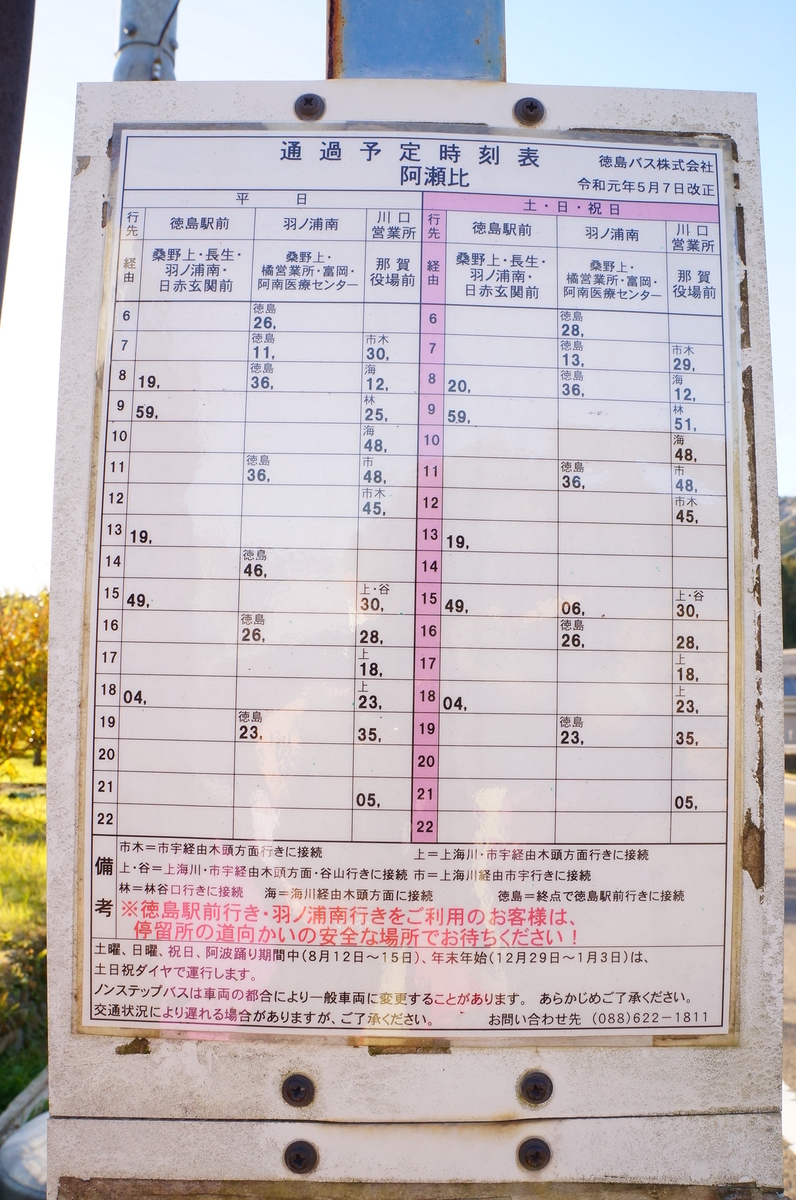 通過予定時刻表
阿瀬比
徳島バス株式会社
令和元年5月7日改正
平日 土・日・祝日
行先 徳島駅前 羽ノ浦南 川口営業所 行先 徳島駅前 羽ノ浦南 川口営業所
経由 桑野上・長生・羽ノ浦南・日赤玄関前 桑野上・橘営業所・富岡・阿南医療センター 那賀役場前 経由 桑野上・長生・羽ノ浦南・日赤玄関前 桑野上・橘営業所・富岡・阿南医療センター 那賀役場前
6 徳島26, 6 徳島28,
7 徳島11, 市木30, 7 徳島13, 市木29,
8 19, 徳島36, 海12, 8 20, 徳島36, 海12,
9 59, 林25, 9 59, 林51,
10 海48, 10 海48,
11 徳島36, 市48, 11 徳島36, 市48,
12 市木45, 12 市木45,
13 19, 13 19,
14 徳島46, 14
15 49, 上・谷30, 15 49, 06, 上・谷30,
16 徳島26, 28, 16 徳島26, 28,
17 上18, 17 上18,
18 04, 上23, 18 04, 上23,
19 徳島23, 35, 19 徳島23, 35,
20 20
21 05, 21 05,
22 22
備考
市木=市宇経由木頭方面行きに接続 上=上海川・市宇経由木頭方面行きに接続
上・谷=上海川・市宇経由木頭方面・谷山行きに接続 市=上海川経由市宇行きに接続
林=林谷口行きに接続 海=海川経由木頭方面に接続 徳島=終点で徳島駅前行きに接続
※徳島駅前行き・羽ノ浦南行きをご利用のお客様は、
停留所の道向かいの安全な場所でお待ちください！
土曜、日曜、祝日、阿波踊り期間中(8月12日〜15日)、年末年始(12月29日〜1月3日)は、
土日祝ダイヤで運行します。
ノンステップバスは車両の都合により一般車両に変更することがあります。 あらかじめご了承ください。
交通状況により遅れる場合がありますが、ご了承ください。 お問い合わせ先 (088)622-1811